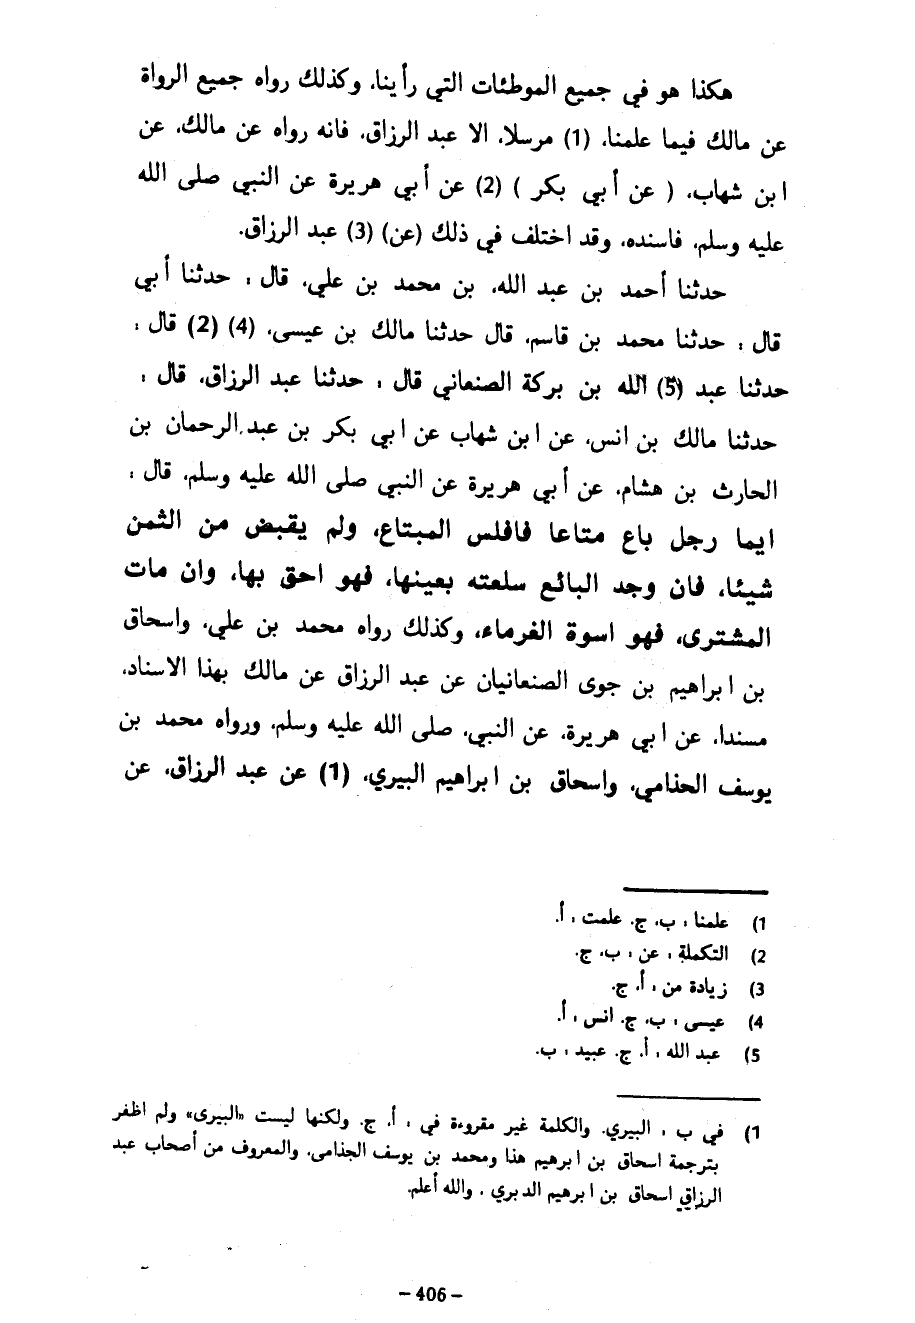 هكذا هو في جميع الموطئات التي رأينا. وكذلك رواه جميع الرواة
عن مالك فيما علمنا. (1) مرسلا. الا عبد الرزاق. فانه رواه عن مالك. عن
ابن شهاب. ( عن أبي بكر ) (2) عن أبي هريرة عن النبي صلى الله
عليه وسلم. فاسنده. وقد اختلف في ذلك (عن) (3) عبد الرزاق.
حدثنا أحمد بن عبد الله. بن محمد بن علي. قال : حدثنا أبي
قال : حدثنا محمد بن قاسم. قال حدثنا مالك بن عيسى. (4) (2) قال :
حدثنا عبد (5) الله بن بركة الصنعاني قال : حدثنا عبد الرزاق. قال :
حدثنا مالك بن انس. عن ابن شهاب عن ابي بكر بن عبد الرحمان بن
الحارث بن هشام. عن أبي هريرة عن النبي صلى الله عليه وسلم. قال :
ايما رجل باع متاعا فافلس المبتاع، ولم يقبض من الثمن
شيئا. فان وجد البائع سلعته بعينها. فهو احق بها. وان مات
المشترى، فهو اسوة الغرماء. وكذلك رواه محمد بن علي. واسحاق
بن ابراهيم بن جوى الصنعانيان عن عبد الرزاق عن مالك بهذا الاسناد.
مسندا. عن ابي هريرة. عن النبي. صلى الله عليه وسلم. ورواه محمد بن
يوسف الحذامي. واسحاق بن ابراهيم البيري. (1) عن عبد الرزاق. عن
1) علمنا : ب، ج. علمت : أ.
2) التكملة : عن : ب، ج.
3) زيادة من : أ، ج.
4) عيسى : ب، ج. انس : أ.
5) عبد الله : أ. ج. عبيد : ب.
1) في ب : البيري. والكلمة غير مقروءة في : أ. ج. ولكنها ليست «البيرى» ولم اظفر
بترجمة اسحاق بن ابرهيم هذا ومحمد بن يوسف الجذامى. والمعروف من أصحاب عبد
الرزاق اسحاق بن ابرهيم الدبري . والله أعلم.
- 406 -